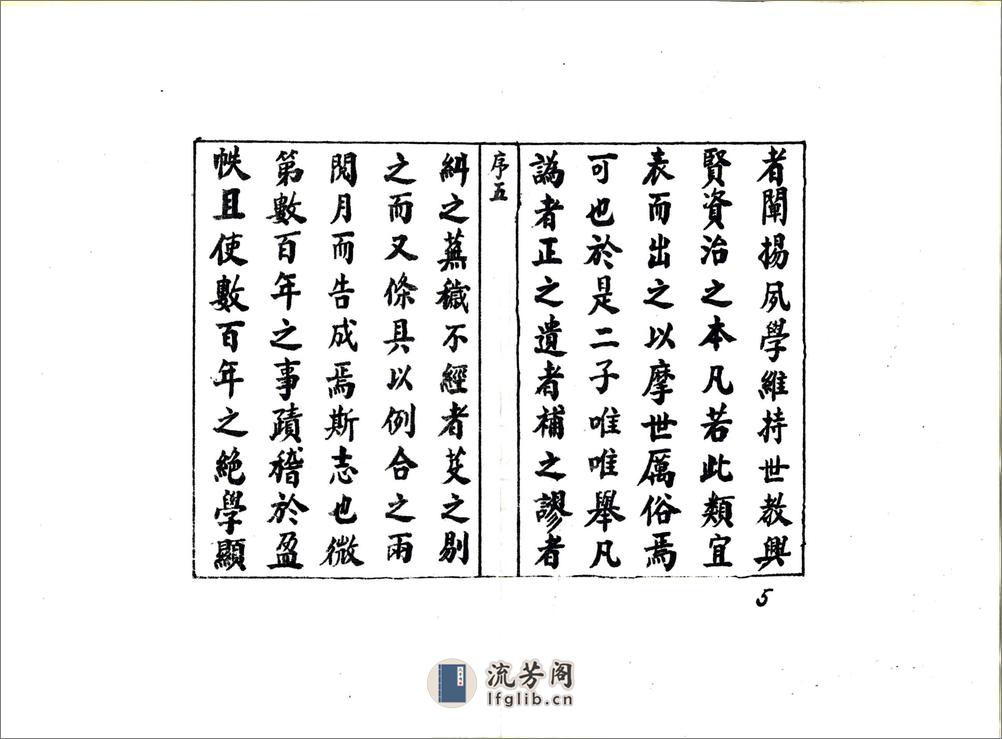 者闡揚夙學維持世教興
賢資治之本凡若此類宜
表而出之以摩世厲俗焉
可也於是二子唯唯舉凡
譌者正之遺者補之謬者
序五
糾之蕪穢不經者芟之剔
之而又條具以例合之兩
閱月而告成焉斯志也微
第數百年之事蹟稽於盈
帙且使數百年之絕學顯
5
流芳阁
lfglib.cn